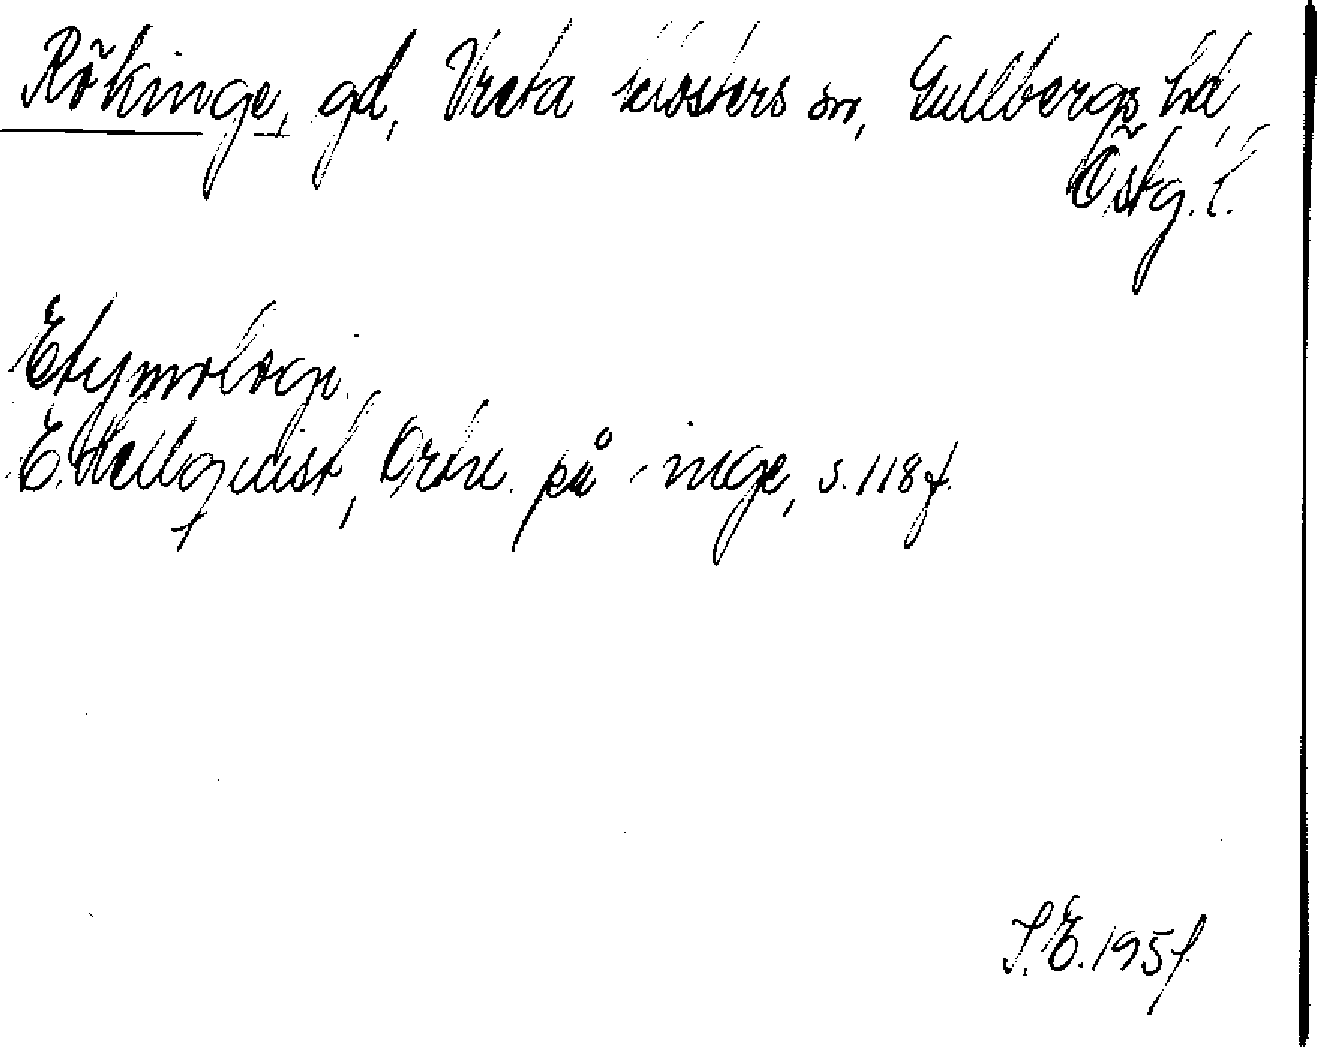 Rökinge, gd, Vreta klosters sn, Gullbergs hd,
Östg. l.
Etymologi.
E. Hellquist, Ortn. på -inge, s. 118 f.
S.E. 1951